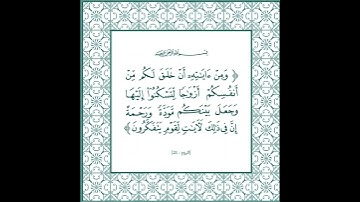 بسم الله الرحمن الرحيم
﴿ وَمِنْ ءَايَٰتِهِۦٓ أَنْ خَلَقَ لَكُم مِّنْ
أَنفُسِكُمْ أَزْوَٰجًا لِّتَسْكُنُوٓا۟ إِلَيْهَا
وَجَعَلَ بَيْنَكُم مَّوَدَّةً وَرَحْمَةً
إِنَّ فِى ذَٰلِكَ لَءَايَٰتٍ لِّقَوْمٍ يَتَفَكَّرُونَ ﴾